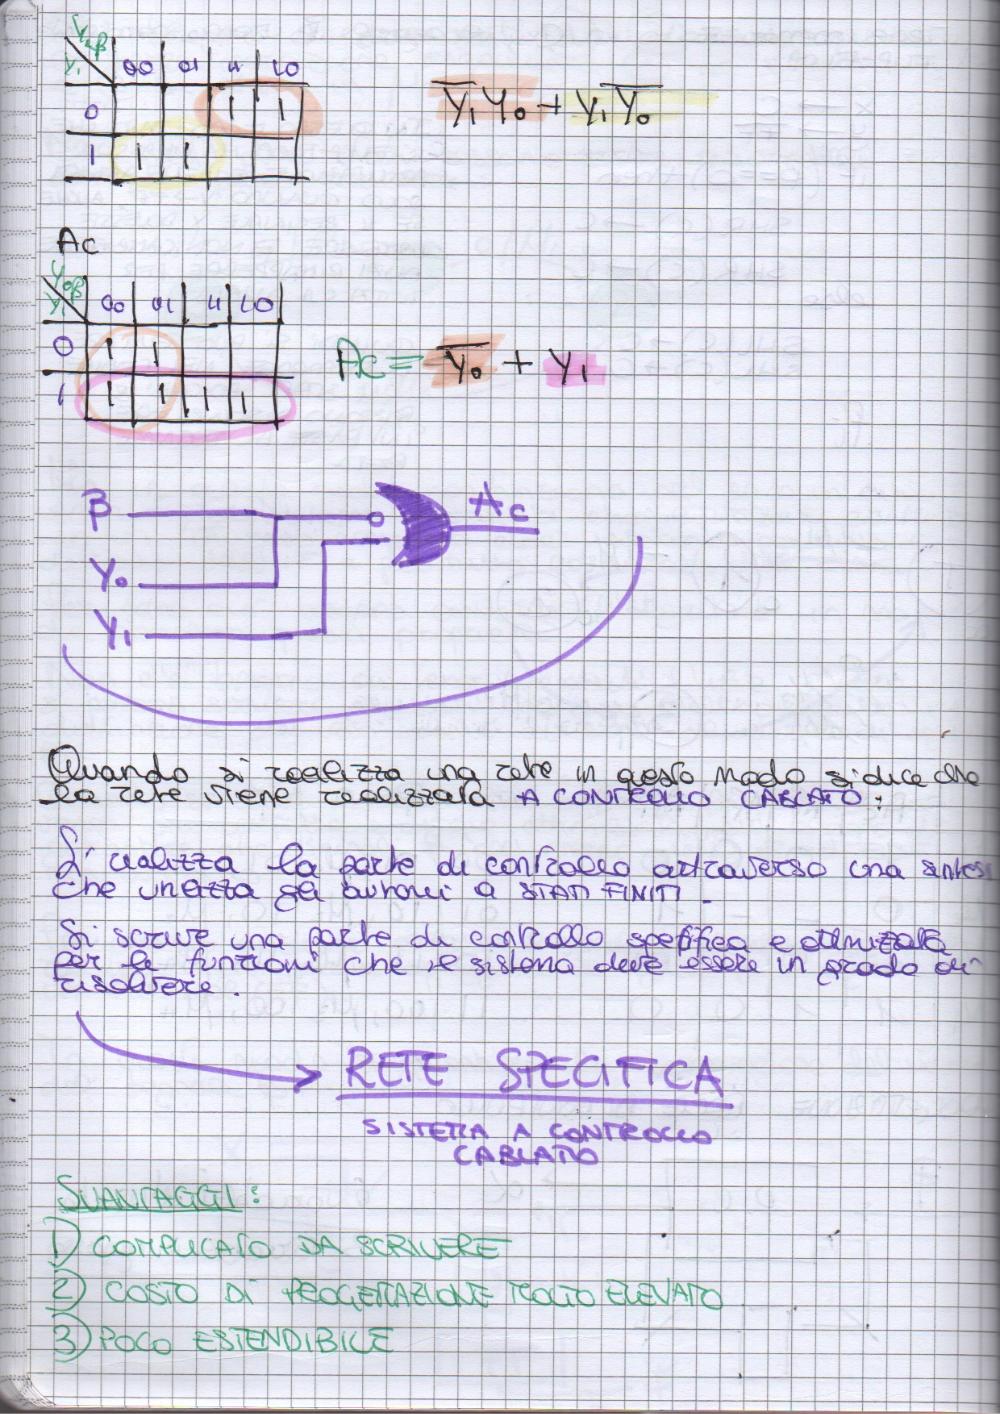 Y₀β
Y₁ 00 01 11 10
0 1 1
1 1 1
Y̅₁Y₀ + Y₁Y̅₀
Ac
Y₀β
Y₁ 00 01 11 10
0 1 1
1 1 1 1 1
Ac = Y̅₀ + Y₁
β
Ac
Y₀
Y₁
Quando si realizza una rete in questo modo si dice che
la rete viene realizzata A CONTROLLO CABLATO:
Si realizza la parte di controllo attraverso una sintesi
che utilizza gli automi a STATI FINITI.
Si scrive una parte di controllo specifica e ottimizzata
per le funzioni che il sistema deve essere in grado di
risolvere.
RETE SPECIFICA
SISTEMA A CONTROLLO
CABLATO
SVANTAGGI:
1) COMPLICATO DA SCRIVERE
2) COSTO DI PROGETTAZIONE MOLTO ELEVATO
3) POCO ESTENDIBILE